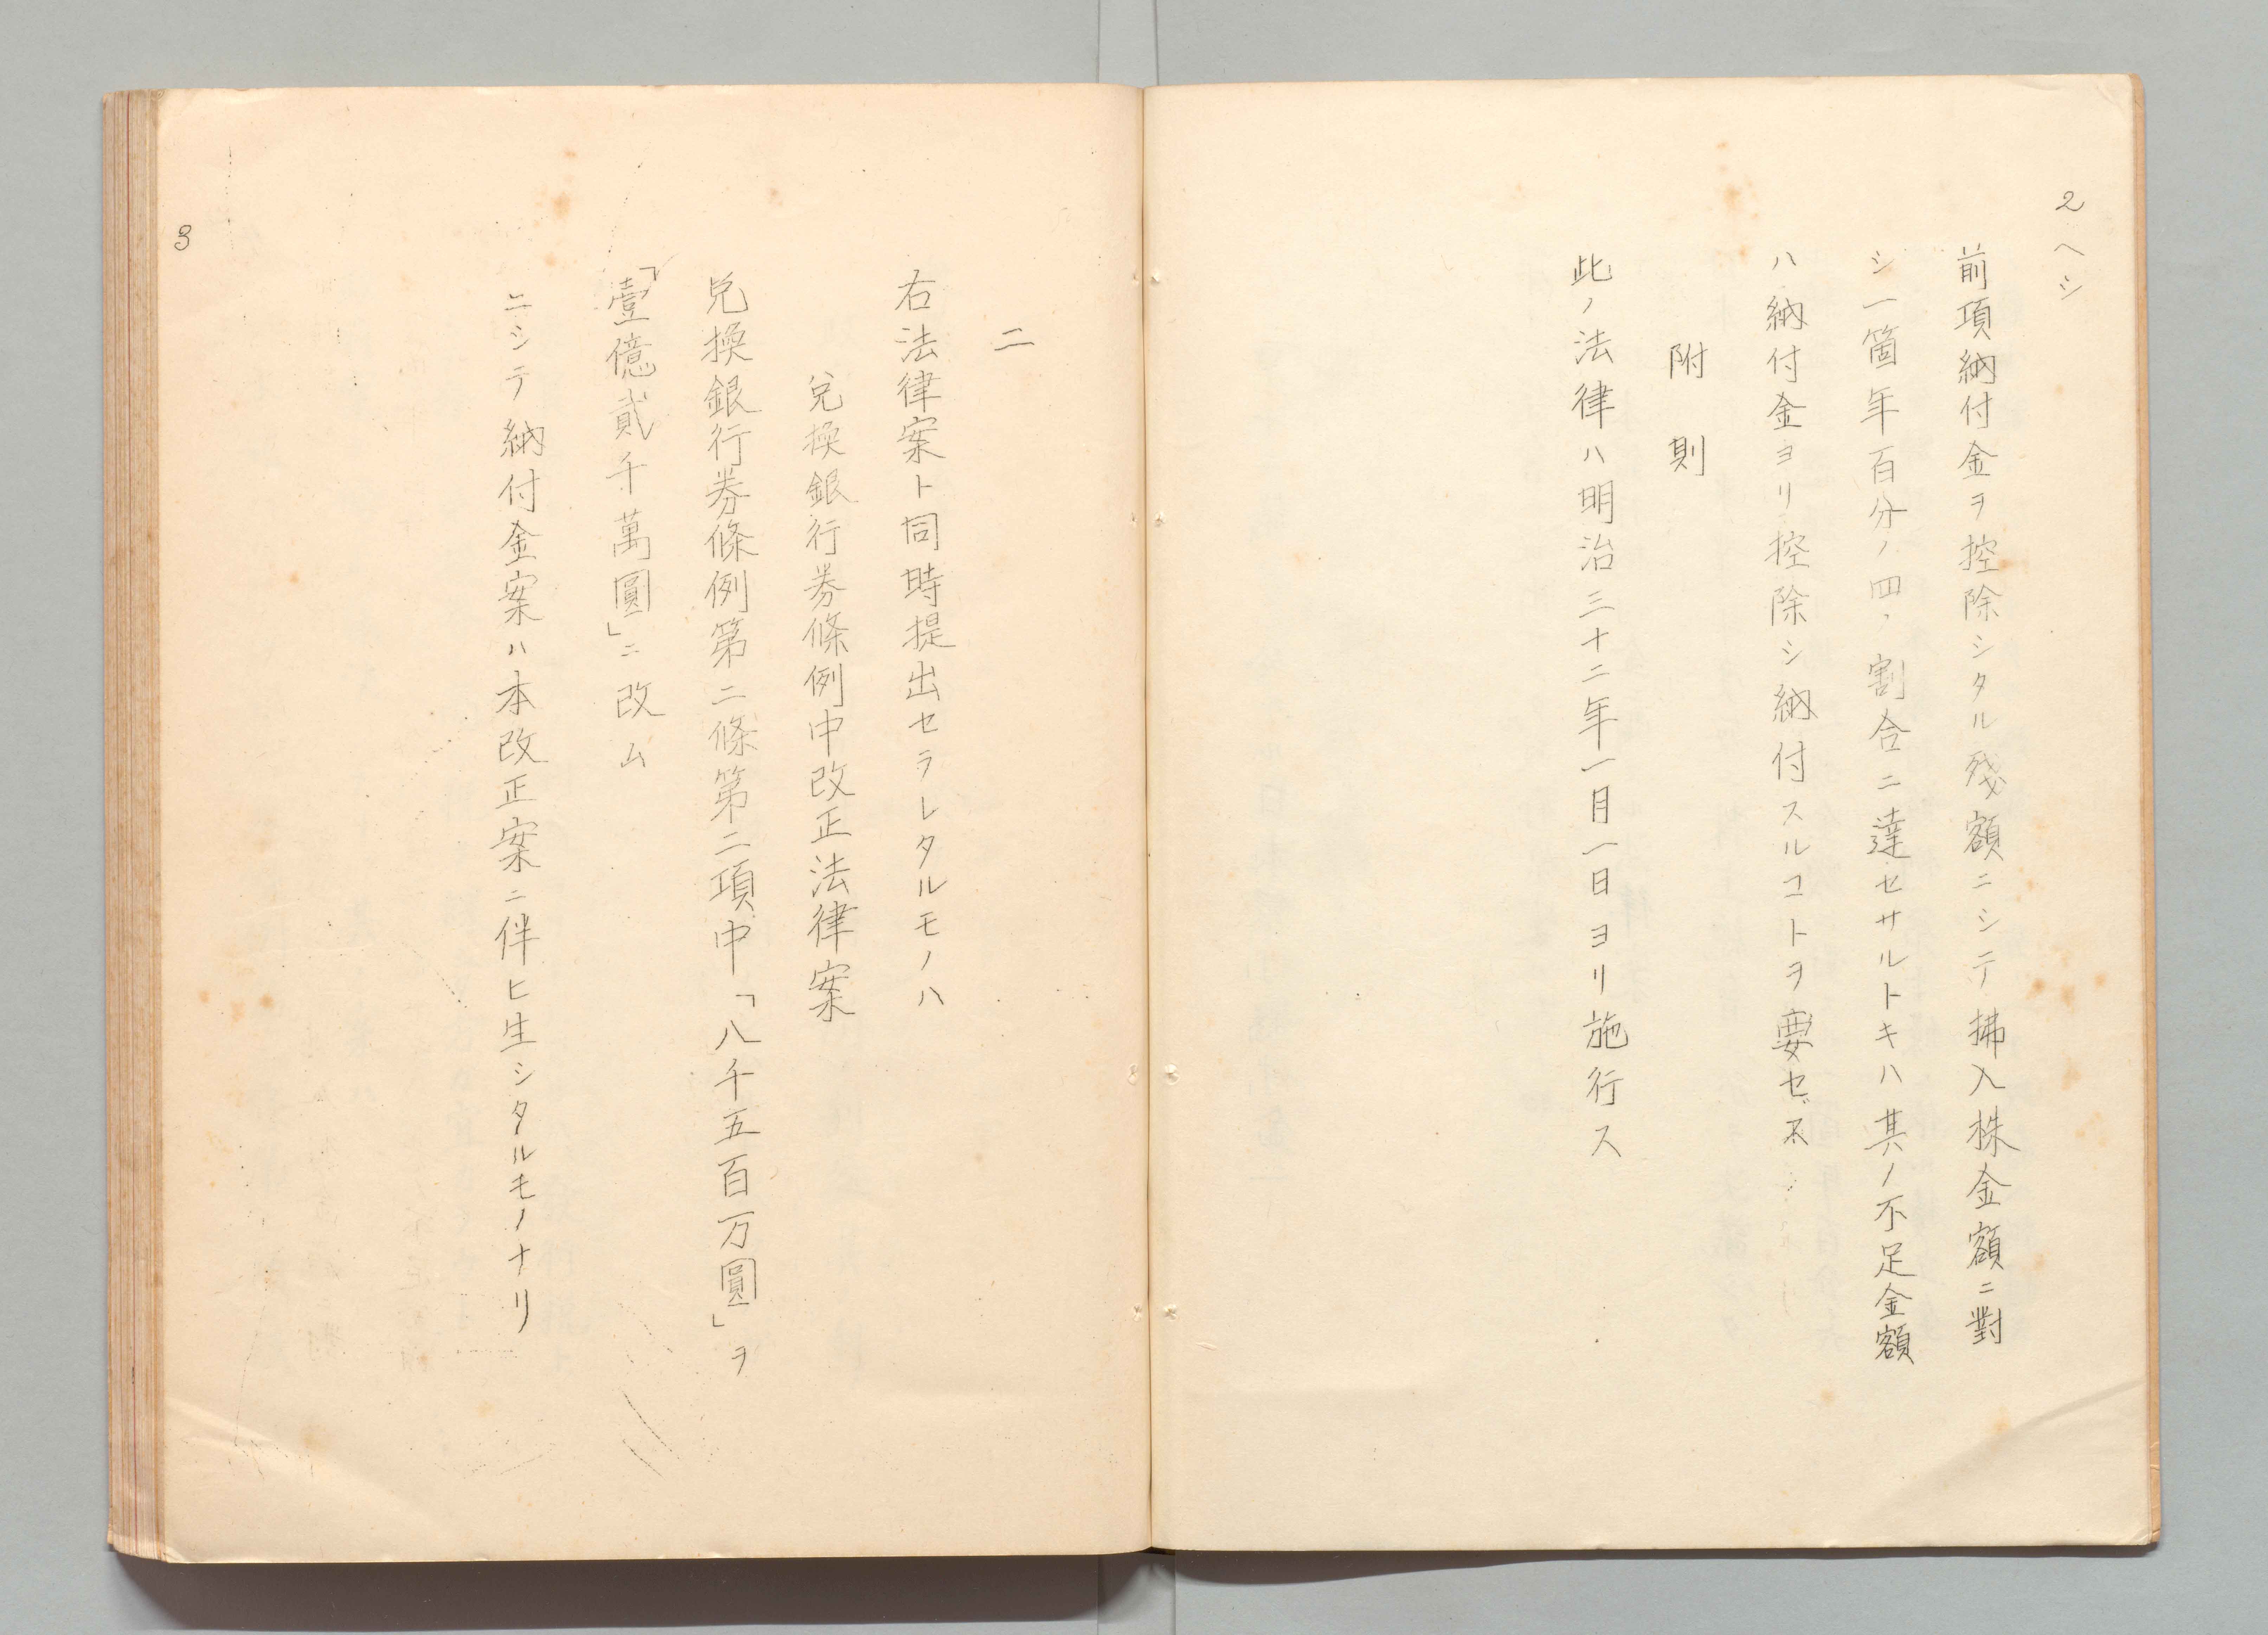 2
ヘシ
前項納付金ヲ控除シタル残額ニシテ拂入株金額ニ對
シ一箇年百分ノ四ノ割合ニ達セサルトキハ其ノ不足金額
ハ納付金ヨリ控除シ納付スルコトヲ要セズ
附則
此ノ法律ハ明治三十二年一月一日ヨリ施行ス
二
右法律案ト同時提出セラレタルモノハ
兌換銀行券條例中改正法律案
兌換銀行券條例第二條第二項中「八千五百万圓」ヲ
「壹億貳千萬圓」ニ改ム
ニシテ納付金案ハ本改正案ニ伴ヒ生シタルモノナリ
3